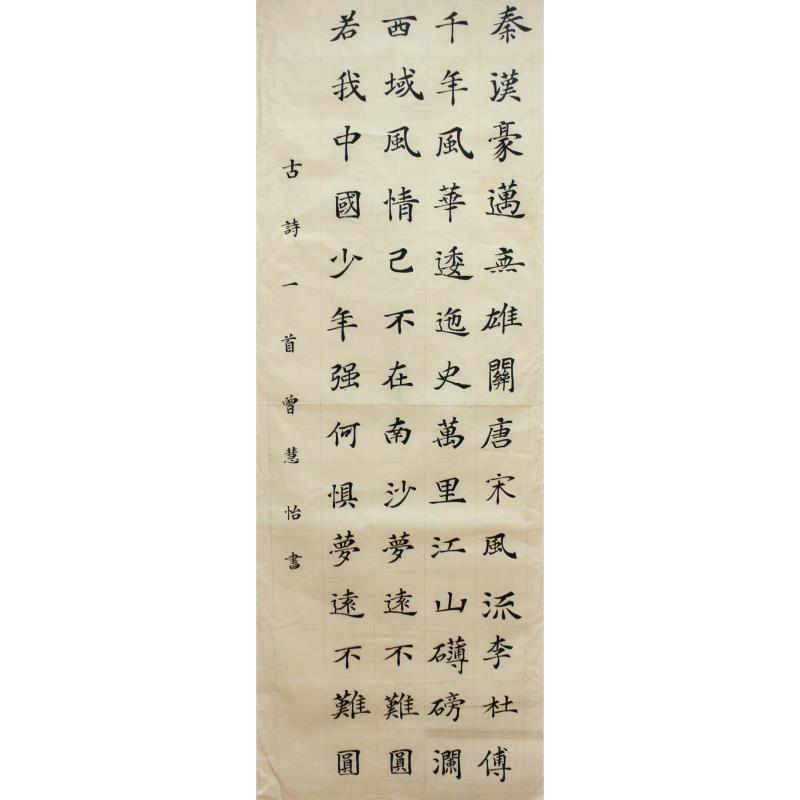 秦漢豪邁無雄關唐宋風流李杜傅
千年風華逶迤史萬里江山礴磅瀾
西域風情己不在南沙夢遠不難圓
若我中國少年强何惧夢遠不難圓
古詩一首曾慧怡書